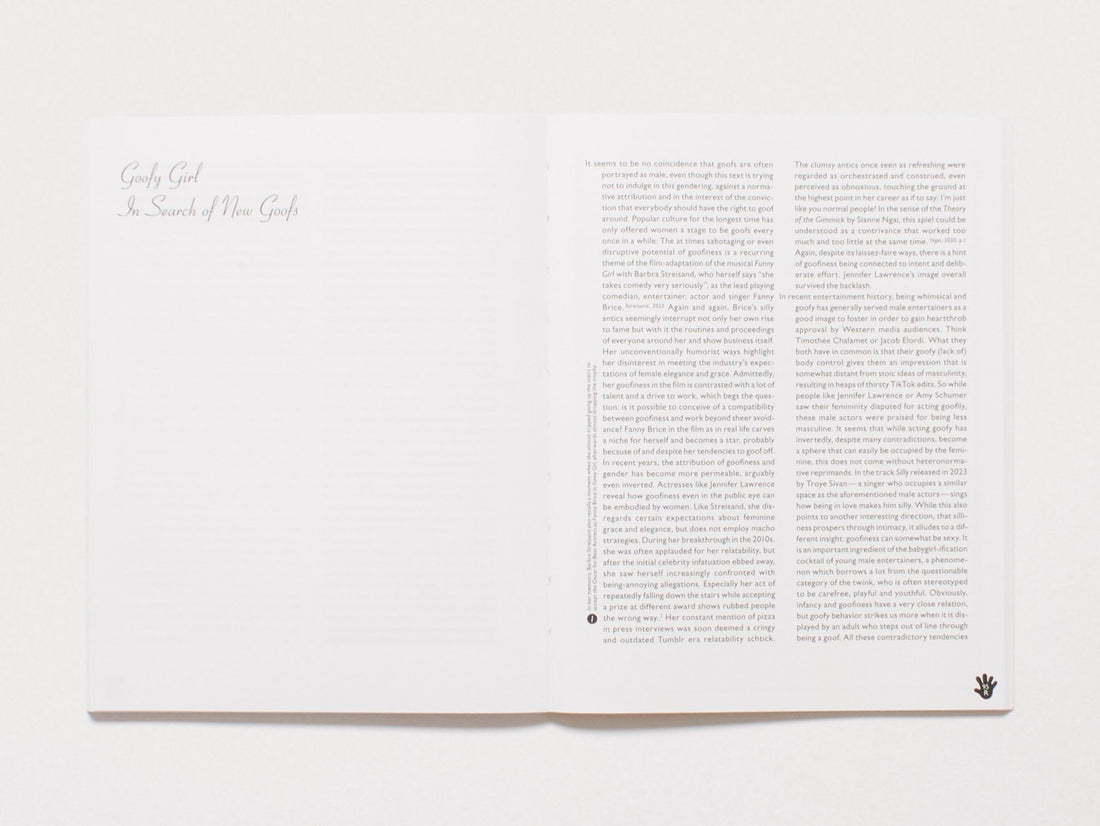 Goofy Girl
In Search of New Goofs
It seems to be no coincidence that goofs are often
portrayed as male, even though this text is trying
not to indulge in this gendering, against a norma-
tive attribution and in the interest of the convic-
tion that everybody should have the right to goof
around. Popular culture for the longest time has
only offered women a stage to be goofs every
once in a while: The at times sabotaging or even
disruptive potential of goofiness is a recurring
theme of the film-adaptation of the musical Funny
Girl with Barbra Streisand, who herself says “she
takes comedy very seriously”, as the lead playing
comedian, entertainer, actor and singer Fanny
Brice. Streisand, 2023 Again and again, Brice’s silly
antics seemingly interrupt not only her own rise
to fame but with it the routines and proceedings
of everyone around her and show business itself.
Her unconventionally humorist ways highlight
her disinterest in meeting the industry’s expec-
tations of female elegance and grace. Admittedly,
her goofiness in the film is contrasted with a lot of
talent and a drive to work, which begs the ques-
tion: is it possible to conceive of a compatibility
between goofiness and work beyond sheer avoid-
ance? Fanny Brice in the film as in real life carves
a niche for herself and becomes a star, probably
because of and despite her tendencies to goof off.
In recent years, the attribution of goofiness and
gender has become more permeable, arguably
even inverted. Actresses like Jennifer Lawrence
reveal how goofiness even in the public eye can
be embodied by women. Like Streisand, she dis-
regards certain expectations about feminine
grace and elegance, but does not employ macho
strategies. During her breakthrough in the 2010s,
she was often applauded for her relatability, but
after the initial celebrity infatuation ebbed away,
she saw herself increasingly confronted with
being-annoying allegations. Especially her act of
repeatedly falling down the stairs while accepting
a prize at different award shows rubbed people
the wrong way. Her constant mention of pizza
in press interviews was soon deemed a cringy
and outdated Tumblr era relatability schtick.
In her memoirs, Barbra Streisand also recalls a moment when she almost tripped going up the stairs to
accept the Oscar for Best Actress as Fanny Brice in Funny Girl, afterwards almost dropping the trophy
The clumsy antics once seen as refreshing were
regarded as orchestrated and construed, even
perceived as obnoxious, touching the ground at
the highest point in her career as if to say: I’m just
like you normal people! In the sense of the Theory
of the Gimmick by Sianne Ngai, this spiel could be
understood as a contrivance that worked too
much and too little at the same time. Ngai, 2020, p.1
Again, despite its laissez-faire ways, there is a hint
of goofiness being connected to intent and delib-
erate effort. Jennifer Lawrence’s image overall
survived the backlash.
In recent entertainment history, being whimsical and
goofy has generally served male entertainers as a
good image to foster in order to gain heartthrob
approval by Western media audiences. Think
Timothée Chalamet or Jacob Elordi. What they
both have in common is that their goofy (lack of)
body control gives them an impression that is
somewhat distant from stoic ideas of masculinity,
resulting in heaps of thirsty TikTok edits. So while
people like Jennifer Lawrence or Amy Schumer
saw their femininity disputed for acting goofily,
these male actors were praised for being less
masculine. It seems that while acting goofy has
invertedly, despite many contradictions, become
a sphere that can easily be occupied by the femi-
nine, this does not come without heteronorma-
tive reprimands. In the track Silly released in 2023
by Troye Sivan—a singer who occupies a similar
space as the aforementioned male actors—sings
how being in love makes him silly. While this also
points to another interesting direction, that silli-
ness prospers through intimacy, it alludes to a dif-
ferent insight: goofiness can somewhat be sexy. It
is an important ingredient of the babygirl-ification
cocktail of young male entertainers, a phenome-
non which borrows a lot from the questionable
category of the twink, who is often stereotyped
to be carefree, playful and youthful. Obviously,
infancy and goofiness have a very close relation,
but goofy behavior strikes us more when it is dis-
played by an adult who steps out of line through
being a goof. All these contradictory tendencies
95
R